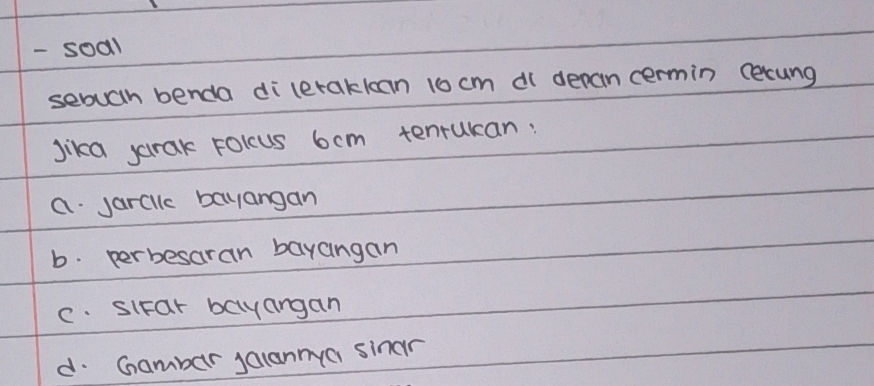 - soal
sebuah benda di letakkan 10 cm di depan cermin cekung
Jika jarak Fokus 6cm tentukan :
a. jarak bayangan
b. perbesaran bayangan
c. sifat bayangan
d. Gambar jalannya sinar